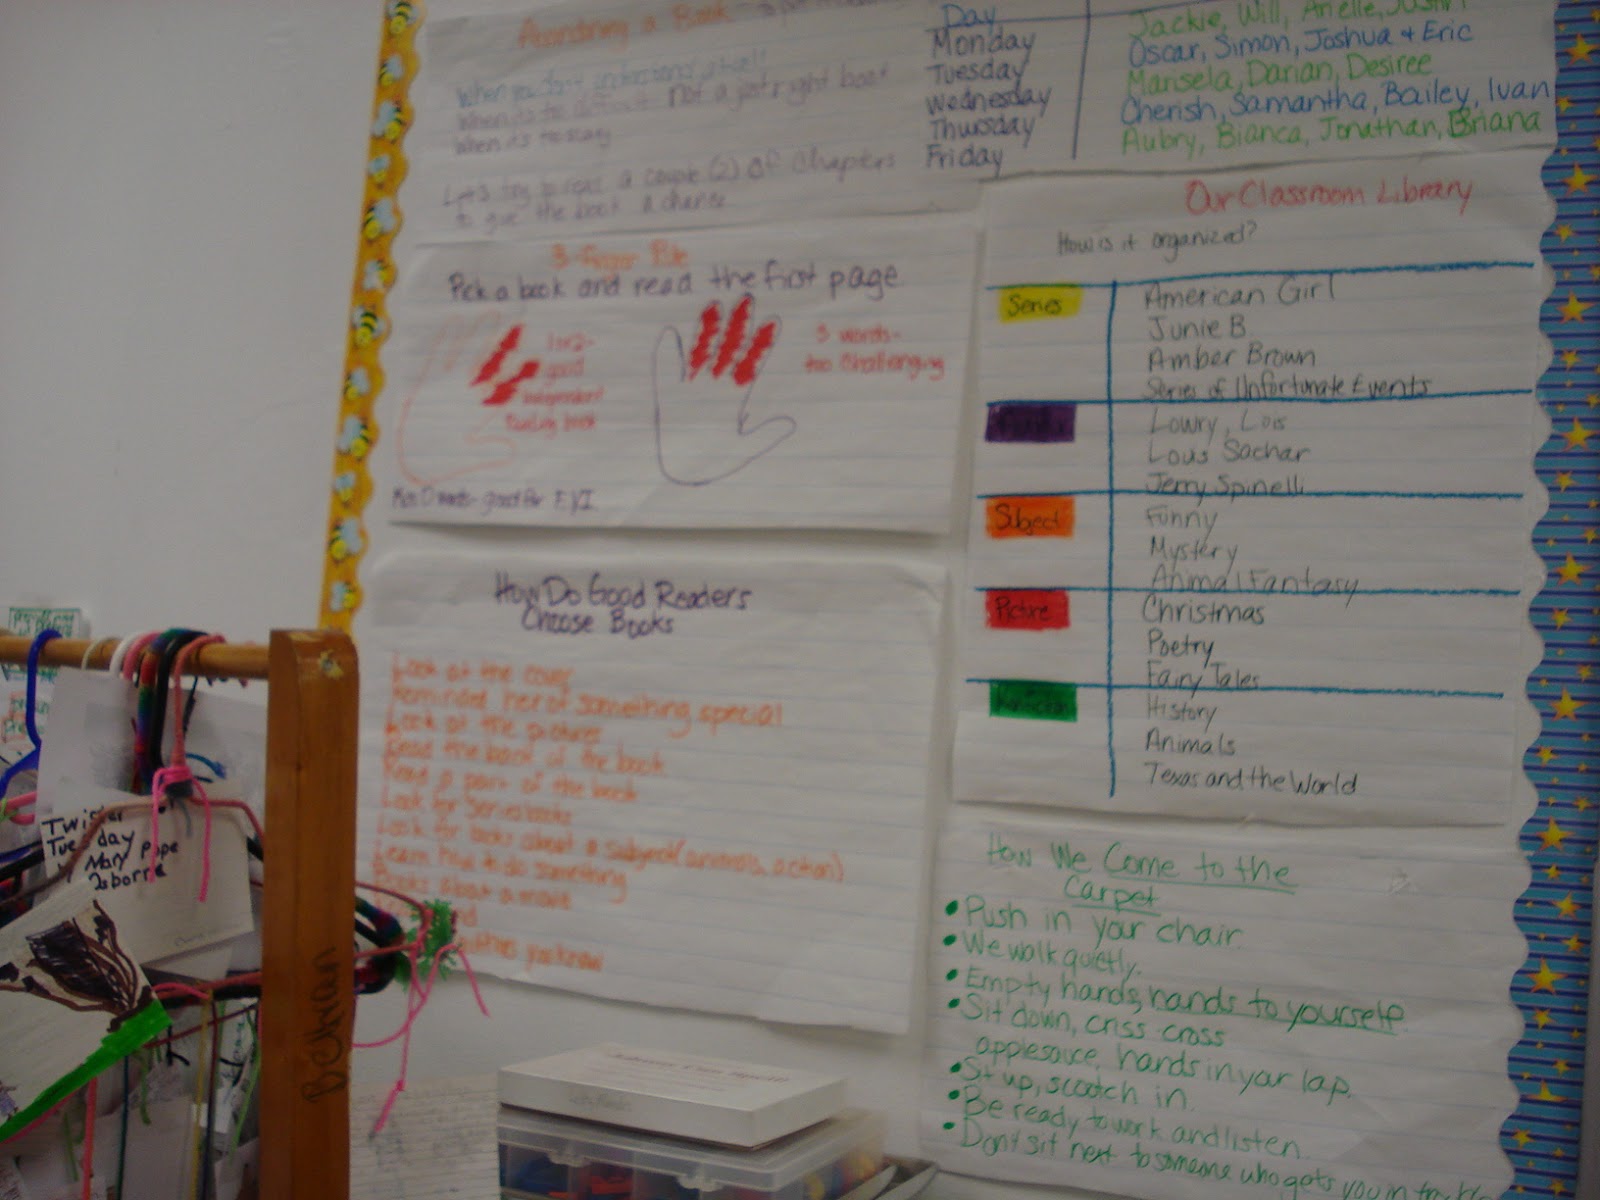 Abandoning a Book
When you don't understand
When it's too difficult not a just right book
When it's too scary
Let's try to read a couple (2) of Chapters
to give the book a chance
Day
Monday
Tuesday
Wednesday
Thursday
Friday
Jackie, Will, Arielle, Justin
Oscar, Simon, Joshua + Eric
Marisela, Darian, Desiree
Cherish, Samantha, Bailey, Ivan
Aubry, Bianca, Jonathan, Briana
3-Finger Rule
Pick a book and read the first page
1 or 2-
good
independent
reading book
3 words-
too challenging
good for
How Do Good Readers
Choose Books
Look at the cover
Reminded her of something special
Look at the pictures
Read the back of the book
Read a part of the book
Look for Series books
Look for books about a subject (animals, action)
Learn how to do something
Books about a movie
you know
Our Classroom Library
How is it organized?
Series
American Girl
Junie B
Amber Brown
Series of Unfortunate Events
Lowry, Lois
Lous Sachar
Jerry Spinelli
Subject
Funny
Mystery
Animal Fantasy
Picture
Christmas
Poetry
Fairy Tales
History
Animals
Texas and the World
How We Come to the
Carpet
• Push in your chair.
• We walk quietly.
• Empty hands, hands to yourself.
• Sit down, criss cross
applesauce, hands in your lap.
• Sit up, scootch in.
• Be ready to work and listen.
• Don't sit next to someone who gets you in
Tuesday
Mary Pope
Osborne